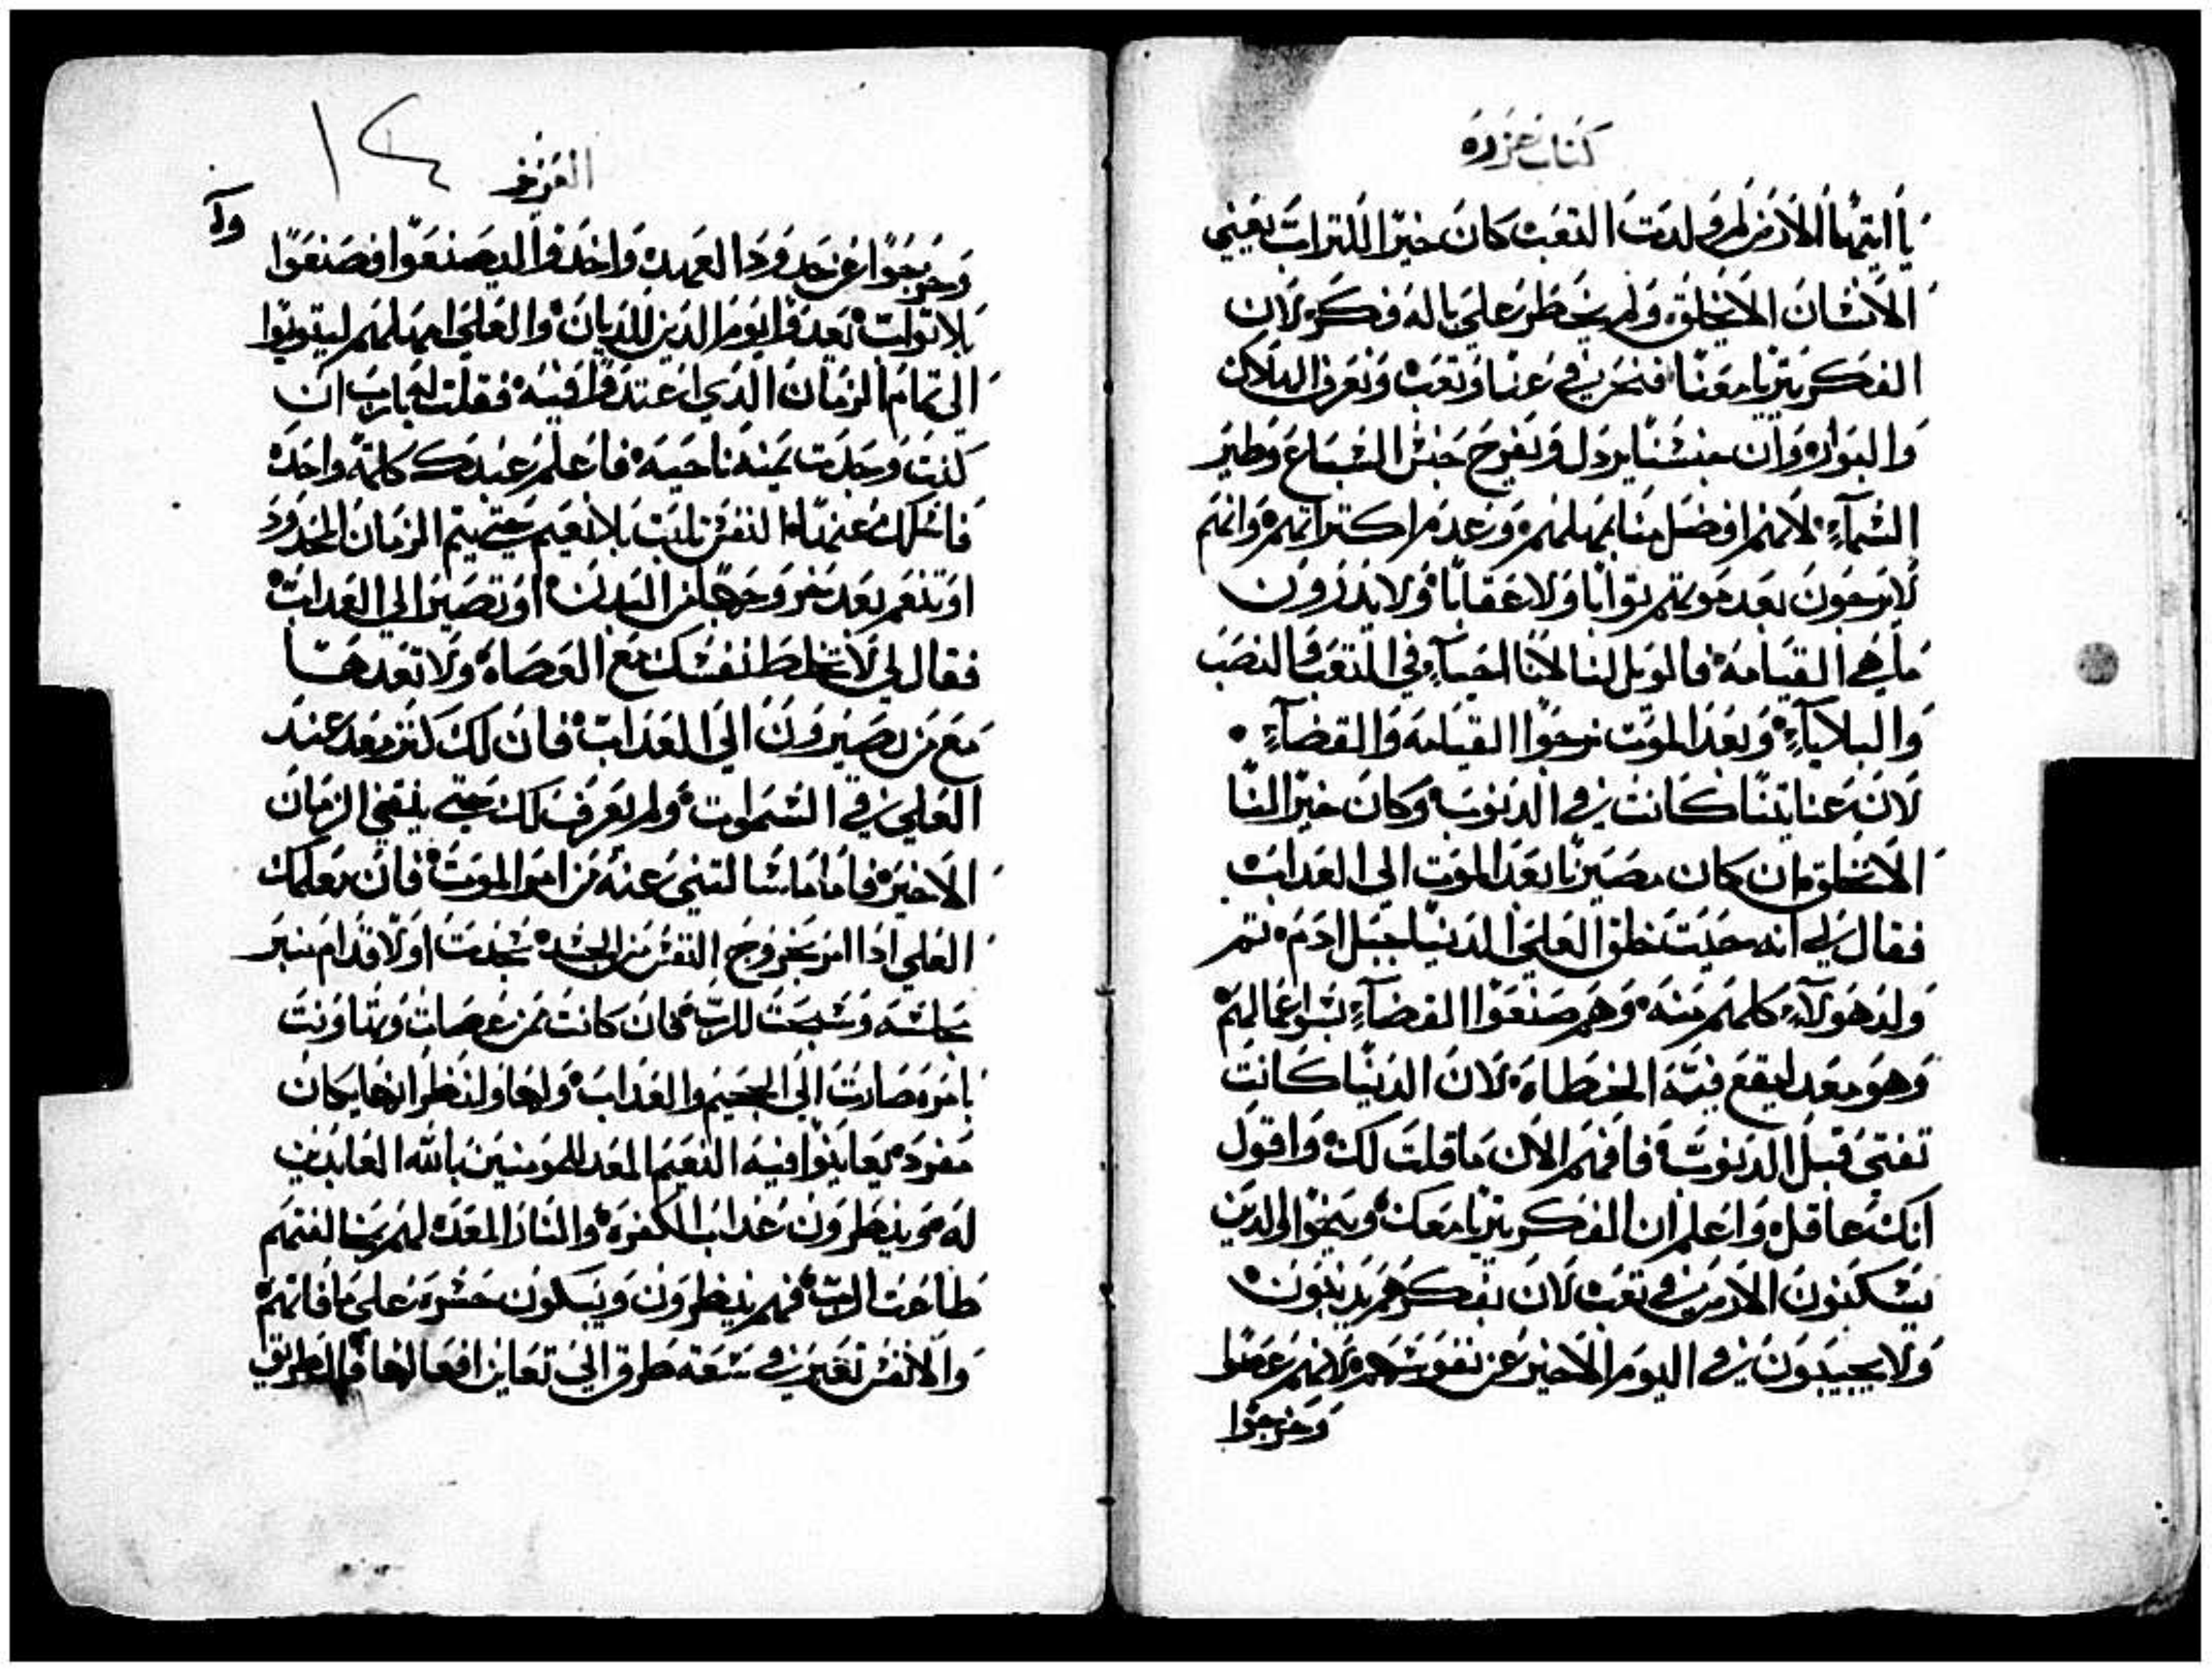 كتاب عزره
يا ايتها الارض لم ولدت التعب كان خيرا للتراب يعني
الانسان الا يخلق ولم يخطر على باله فكر لان
الفكر يتربا معنا فنحن في عنا وتعب ونعرف الهلاك
والبوار وان جنسنا يردل ويفرح جنس السباع وطير
السماء لانهم افضل منا بمهلهم وعدم اكتراتهم وانهم
لا يرجون بعد موتهم توابا ولا عقابا ولا يدرون
ما هي القيامة فالويل لنا لانا احياء في التعب والنصب
والبلاياء وبعد الموت نرجوا القيامه والقضاء
لان عنايتنا كانت في الدنوب وكان خيرا لنا
الا نخلق ان كان مصيرنا بعد الموت الى العداب
فقال لي انه حيت خلق العلي الدنيا جبل ادم تم
ولد هولاء كلهم منه وهم صنعوا القضاء بسو اعمالهم
وهو معد ليقع فيه الخطاه لان الدنيا كانت
تفتى قبل الدنوب فافهم الان ما قلت لك واقول
انك عاقل واعلم ان الفكر يتربا معك وينجوا الدين
يسكنون الارض في تعب لان بفكرهم يدنبون
ولا يجيبون في اليوم الاخير عن نفوسهم لانهم عصوا
وخرجوا
العزيز
وخرجوا عن حدود العهد واخدوا ليصنعوا فصنعوا
بلا توات بعدوا يوم الدين للديان والعلي امهلهم ليتوبوا
الى تمام الزمان الدي اعتدوا فيه فقلت يارب ان
كنت وجدت نعمه ناحيه فاعلم عبدك كلمة واحدة
فانك عند النفس تلبت بلا نعيم حتى يتم الزمان المحدود
او تنعم بعد خروجها من البدن او تصير الى العداب
فقال لي لا تخلط نفسك مع العصاه ولا تعدها
مع من يصيرون الى العداب فان لك كنز معد عند
العلي في السموات ولم يعرف لك حتى ينقضي الزمان
الاخير فاما ما سالتني عنه من امر الموت فان معلمك
العلي ادا امر بخروج النفس من الجسد سجدت اولا قدام منبر
مجلسه وسبحت للرب فان كانت من عصات وتهاونت
بامره صارت الى الجحيم والعداب ولها ولنظرائها مكان
مفرد يعاينوا فيه النعيم المعد للمومنين بالله العابدين
له وينظرون عداب الكفره والنار المعده لهم بمخالفتهم
طاعت الرب فهم ينظرون ويبكون حسره على ما فاتهم
والانفس تعبر في سبعة طرق الى تعاين افعالها فالطريق